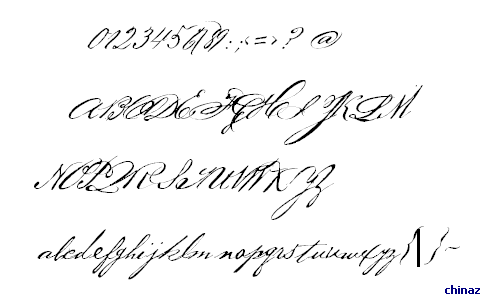 0123456789:;<=>? @
ABCDEFGHIJKLM
NOPQRSTUVWXYZ
abcdefghijklmnopqrstuvwxyz{|}~
chinaz